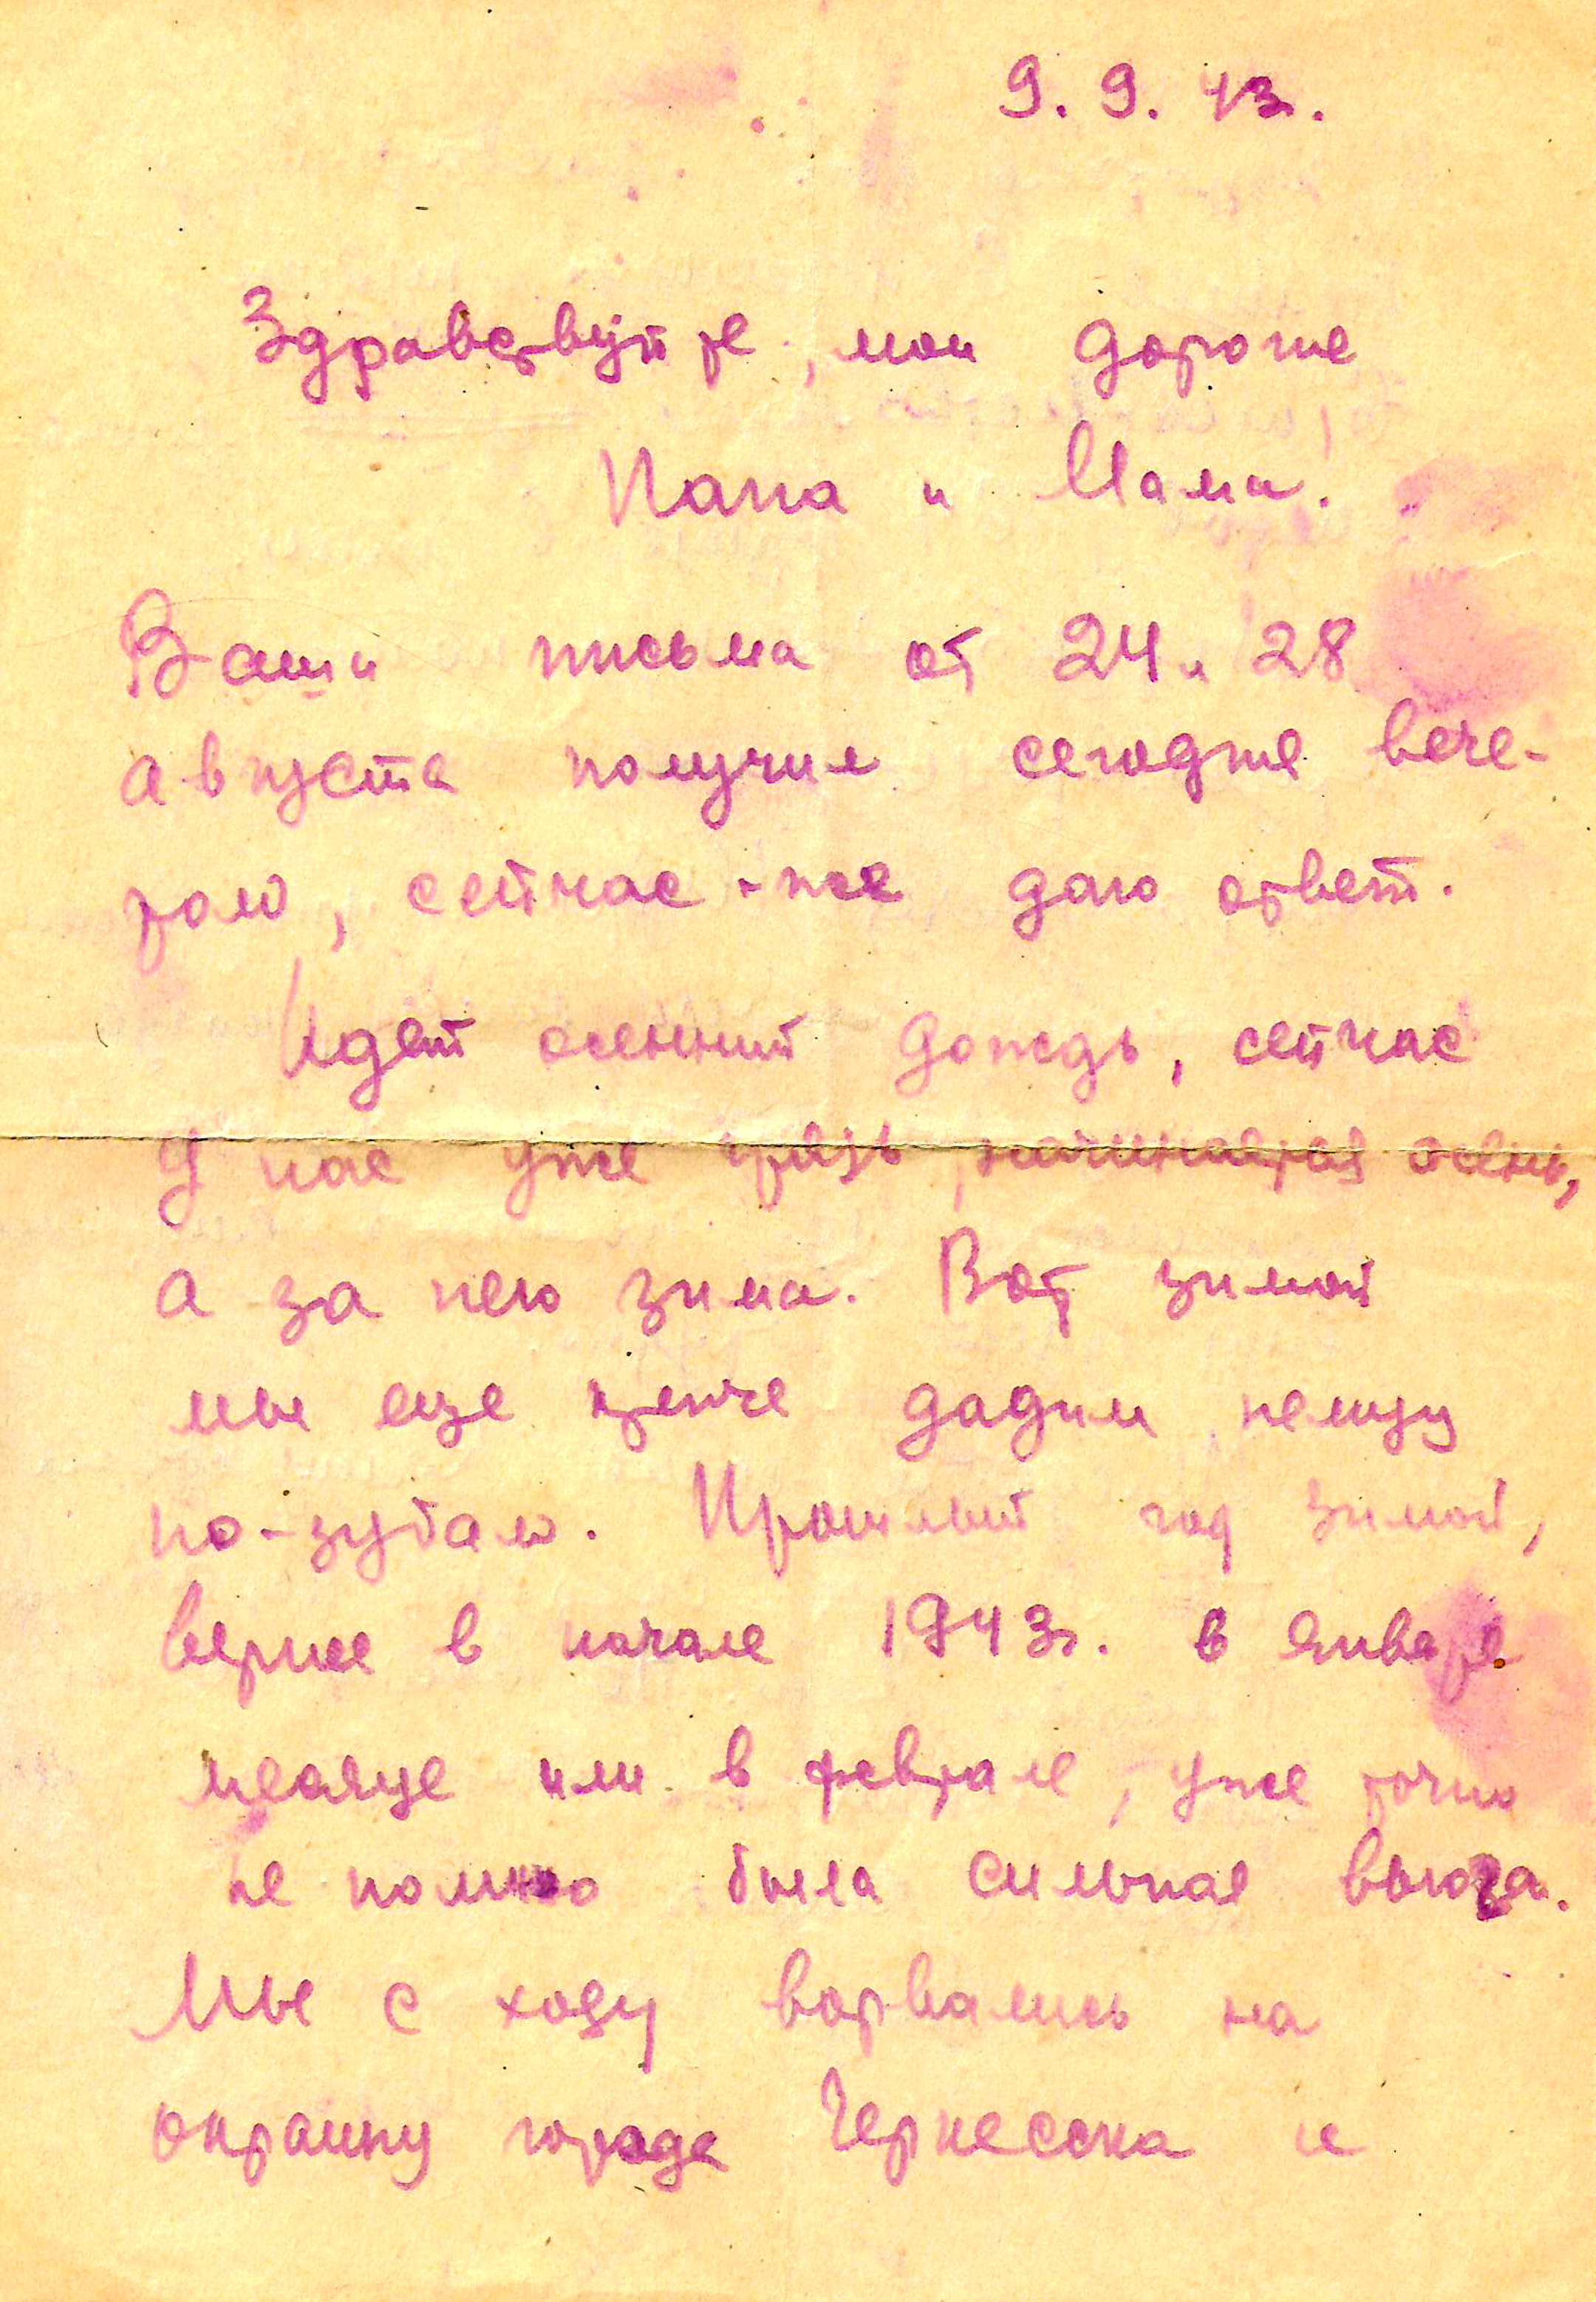 9. 9. 43г.
Здравствуйте, мои дорогие
Папа и Мама!
Ваши письма от 24 и 28
августа получил сегодня вече-
ром, сейчас-же даю ответ.
Идет осенний дождь, сейчас
у нас уже грязь, начинается осень,
а за нею зима. Вот зимой
мы еще крепче дадим немцу
по-зубам. Прошлый год зимой,
вернее в начале 1943г. в январе
месяце или в феврале, уже точно
не помню была сильная вьюга.
Мы с ходу ворвались на
окраину города Черкесска и